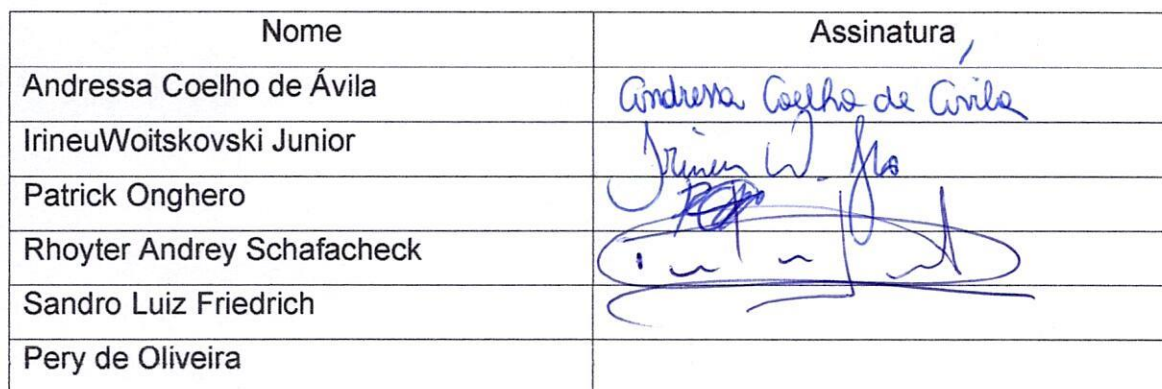 Nome Assinatura
Andressa Coelho de Ávila Andressa Coelho de Ávila
IrineuWoitskovski Junior Irineu W.
Patrick Onghero
Rhoyter Andrey Schafacheck
Sandro Luiz Friedrich
Pery de Oliveira